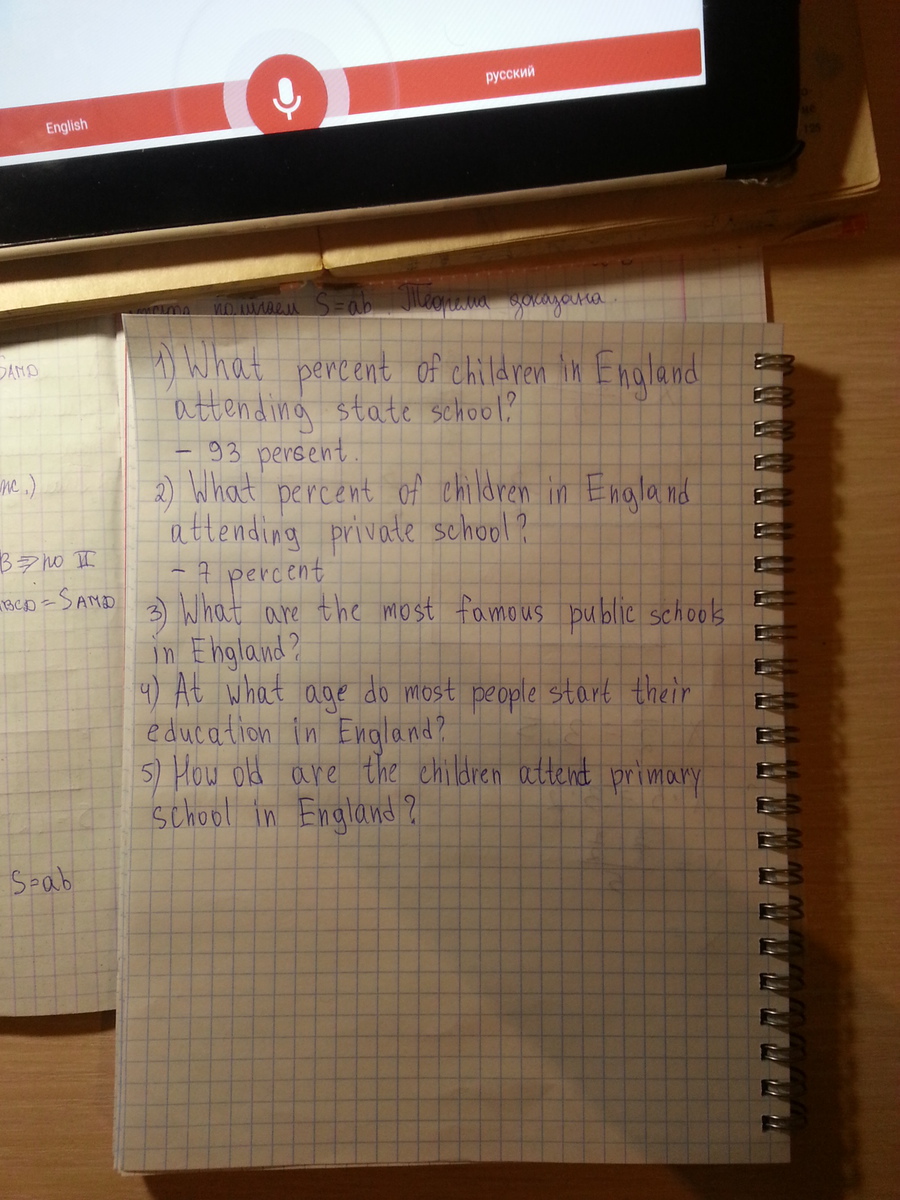 English
русский
S=ab. Теорема доказана.
SAMD
1) What percent of children in England
attending state school?
- 93 persent.
2) What percent of children in England
attending private school?
- 7 percent
3) What are the most famous public schools
in England?
4) At what age do most people start their
education in England?
5) How old are the children attent primary
school in England?
B => по II
ABCD = SAMD
S=ab